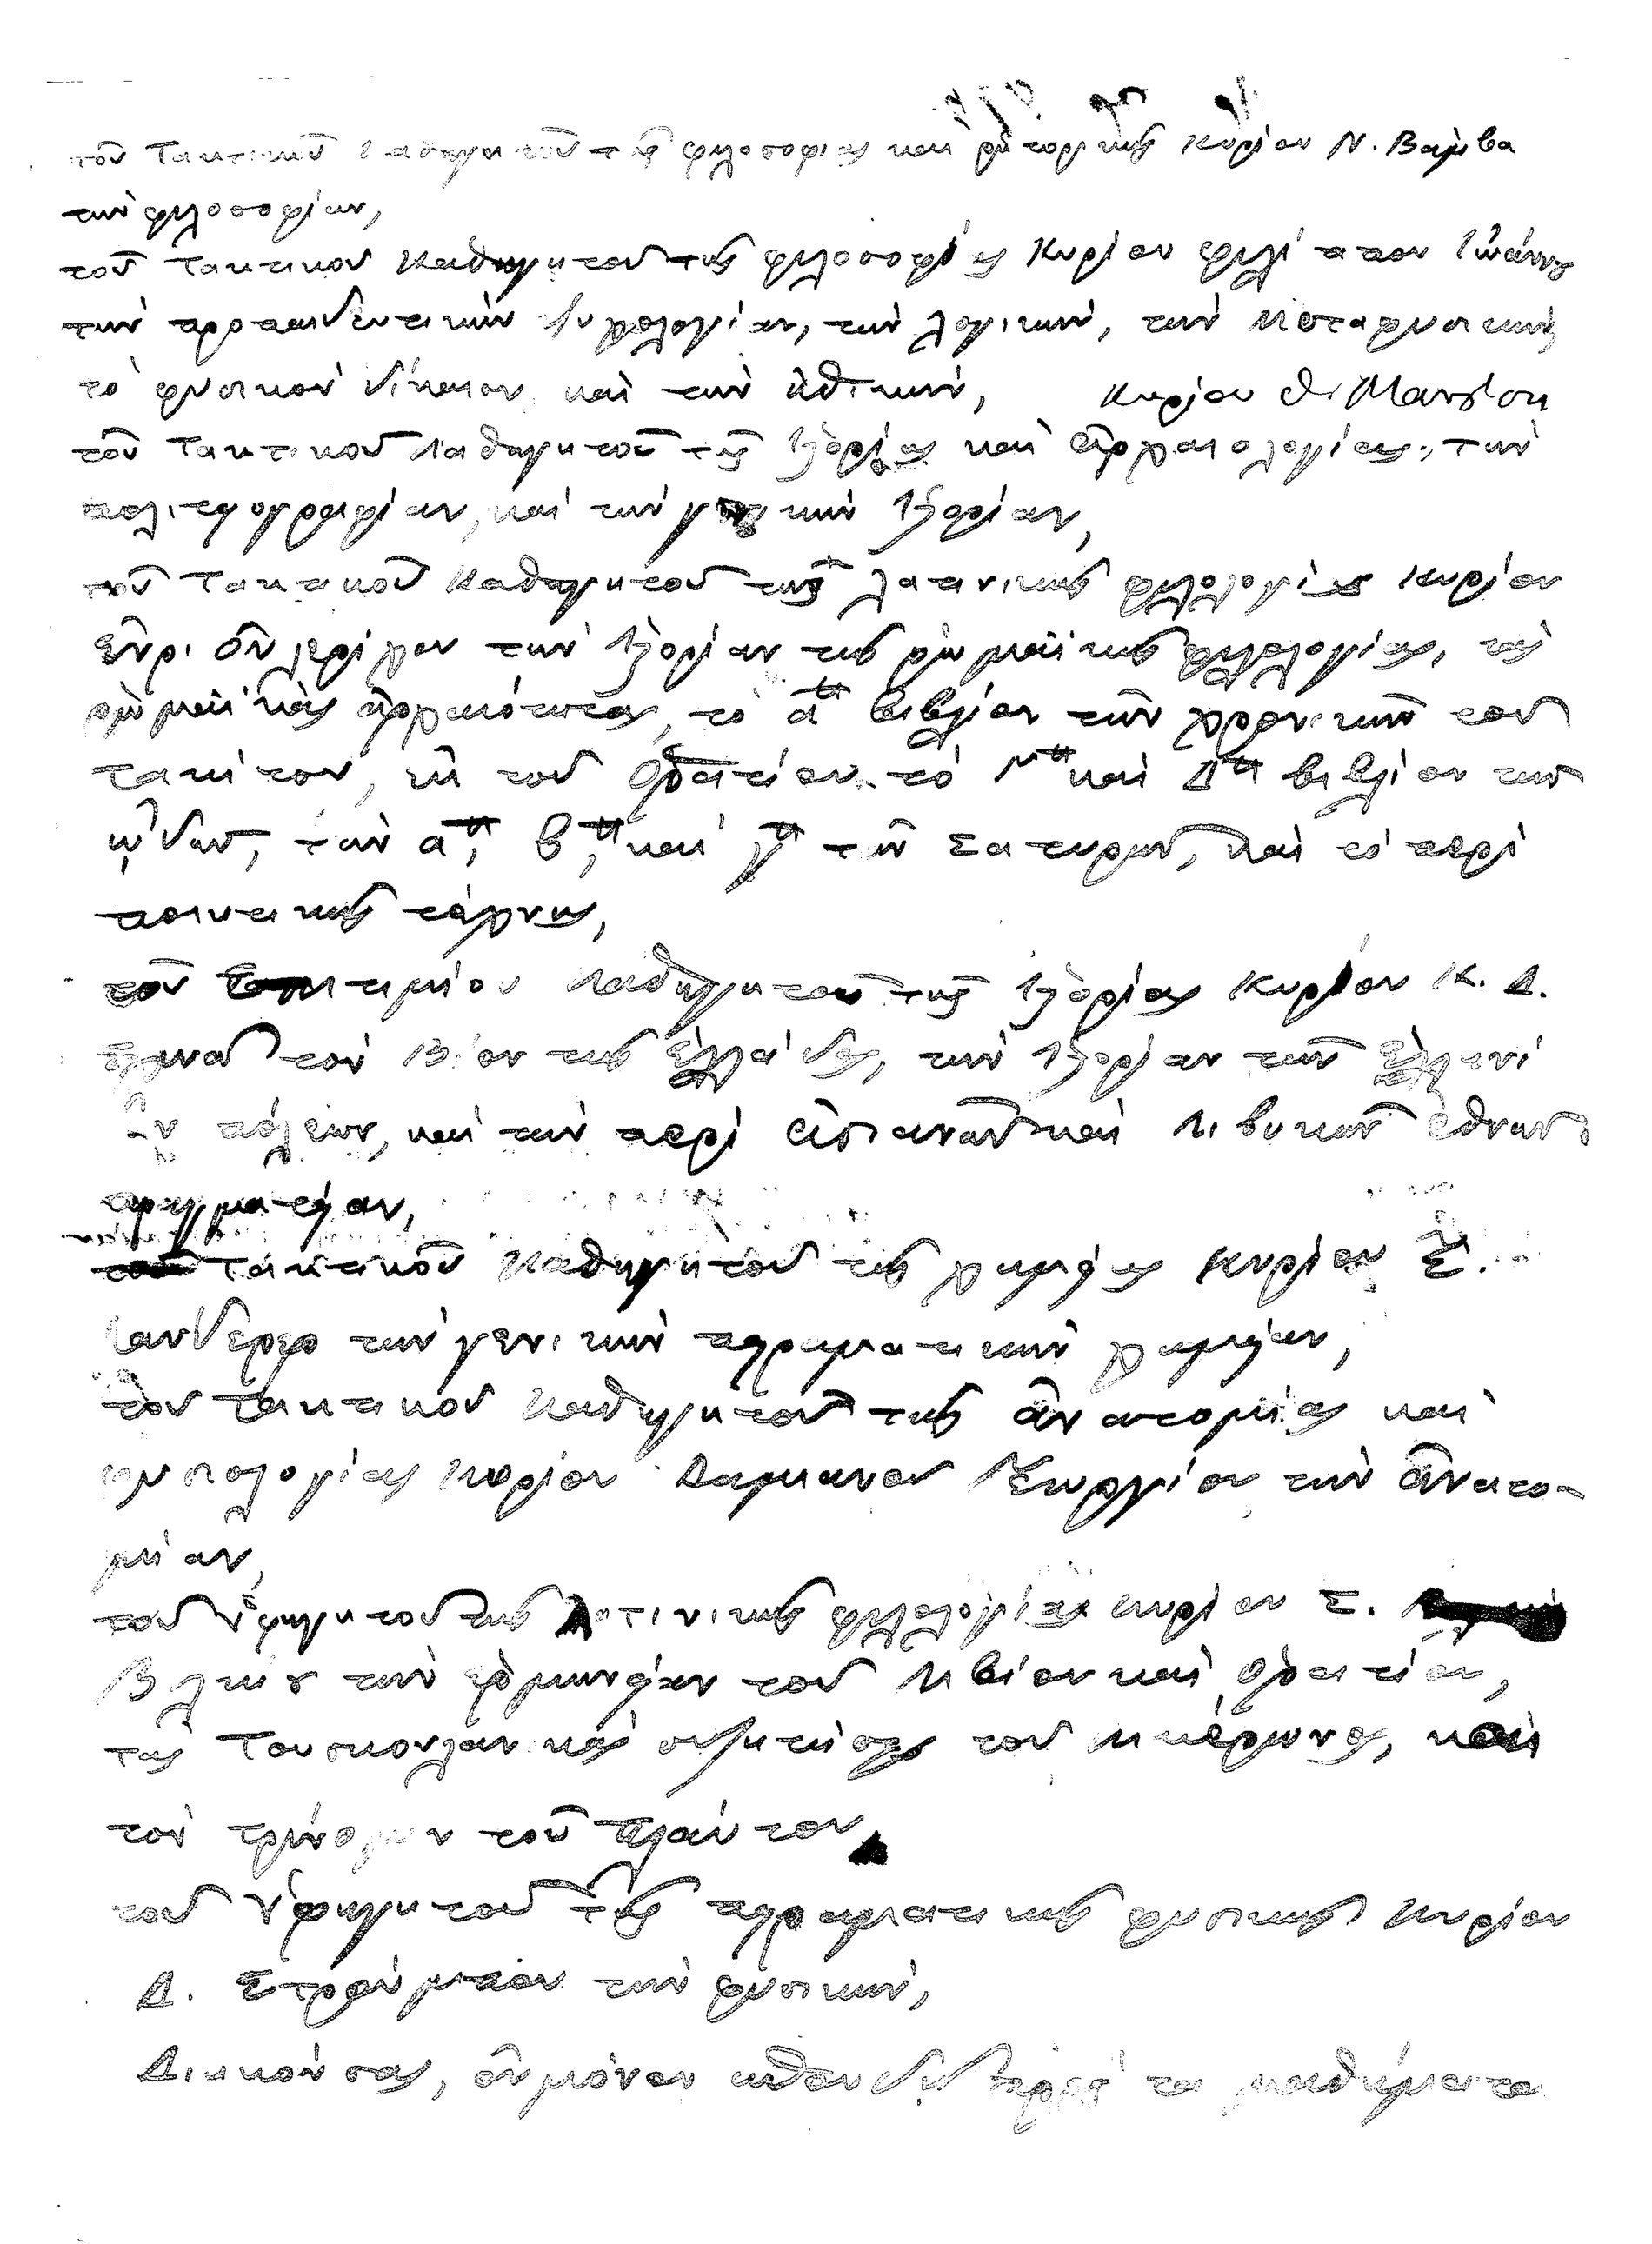 τοῦ Τακτικοῦ καθηγητοῦ τῆς φιλοσοφίας καὶ ῥητορικῆς Κυρίου Ν. Βάμβα
τὴν φιλοσοφίαν,
τοῦ Τακτικοῦ καθηγητοῦ τῆς φιλοσοφίας Κυρίου Φιλίππου Ἰωάννου
τὴν προπαιδευτικὴν ψυχολογίαν, τὴν λογικὴν, τὴν μεταφυσικὴν
τὸ φυσικὸν δίκαιον καὶ τὴν ἠθικὴν, Κυρίου Θ. Μανούση
τοῦ Τακτικοῦ καθηγητοῦ τῆς Ἱστορίας καὶ ἀρχαιολογίας, τὴν
πολιτειογραφίαν, καὶ τὴν γενικὴν Ἱστορίαν,
τοῦ Τακτικοῦ καθηγητοῦ τῆς λατινικῆς φιλολογίας Κυρίου
Ἑνρ. Οὐλερίχου τὴν Ἱστορίαν τῆς ῥωμαϊκῆς φιλολογίας, τὰς
ῥωμαϊκὰς ἀρχαιότητας, τὸ α<sup>ον</sup> βιβλίον τῶν χρονικῶν τοῦ
Τακίτου, ἐκ τοῦ Ὁρατίου τὸ Γ<sup>ον</sup> καὶ Δ<sup>ον</sup> βιβλίον τῶν
ᾠδῶν, τὴν α<sup>ην</sup>, β<sup>αν</sup>, καὶ γ<sup>ην</sup> τῶν Σατυρῶν, καὶ τὸ περὶ
ποιητικῆς τέχνης,
τοῦ ἐπιτιμίου καθηγητοῦ τῆς Ἱστορίας Κυρίου Κ. Δ.
Σχινᾶ τὸν Βίον τῆς Ἑλλάδος, τὴν Ἱστορίαν τῶν Ἑλληνι
κῶν πόλεων, καὶ τὴν περὶ ἀσιανῶν καὶ Λιβυκῶν ἐθνῶν
πραγματείαν,
τοῦ Τακτικοῦ καθηγητοῦ τῆς χημείας Κυρίου Ξ.
Λανδερερ τὴν γενικὴν πραγματικὴν χημείαν,
τοῦ Τακτικοῦ καθηγητοῦ τῆς ἀνατομίας καὶ
φυσιολογίας Κυρίου Δαμιανοῦ Γεωργίου τὴν ἀνατο-
μίαν,
τοῦ ὑφηγητοῦ τῆς Λατινικῆς φιλολογίας κυρίου Σ.
Βλάχου τὴν ἑρμηνείαν τοῦ Λιβίου καὶ Ὁρατίου,
τὰς Τουσκουλανικὰς συζητήσεις τοῦ Κικέρωνος, καὶ
τὸν τρίνομον τοῦ Πλαύτου
τοῦ ὑφηγητοῦ τῆς πειραματικῆς φυσικῆς Κυρίου
Δ. Στρούμπου τὴν φυσικὴν,
Διακούσας, οὐ μόνον τὰ μαθήματα